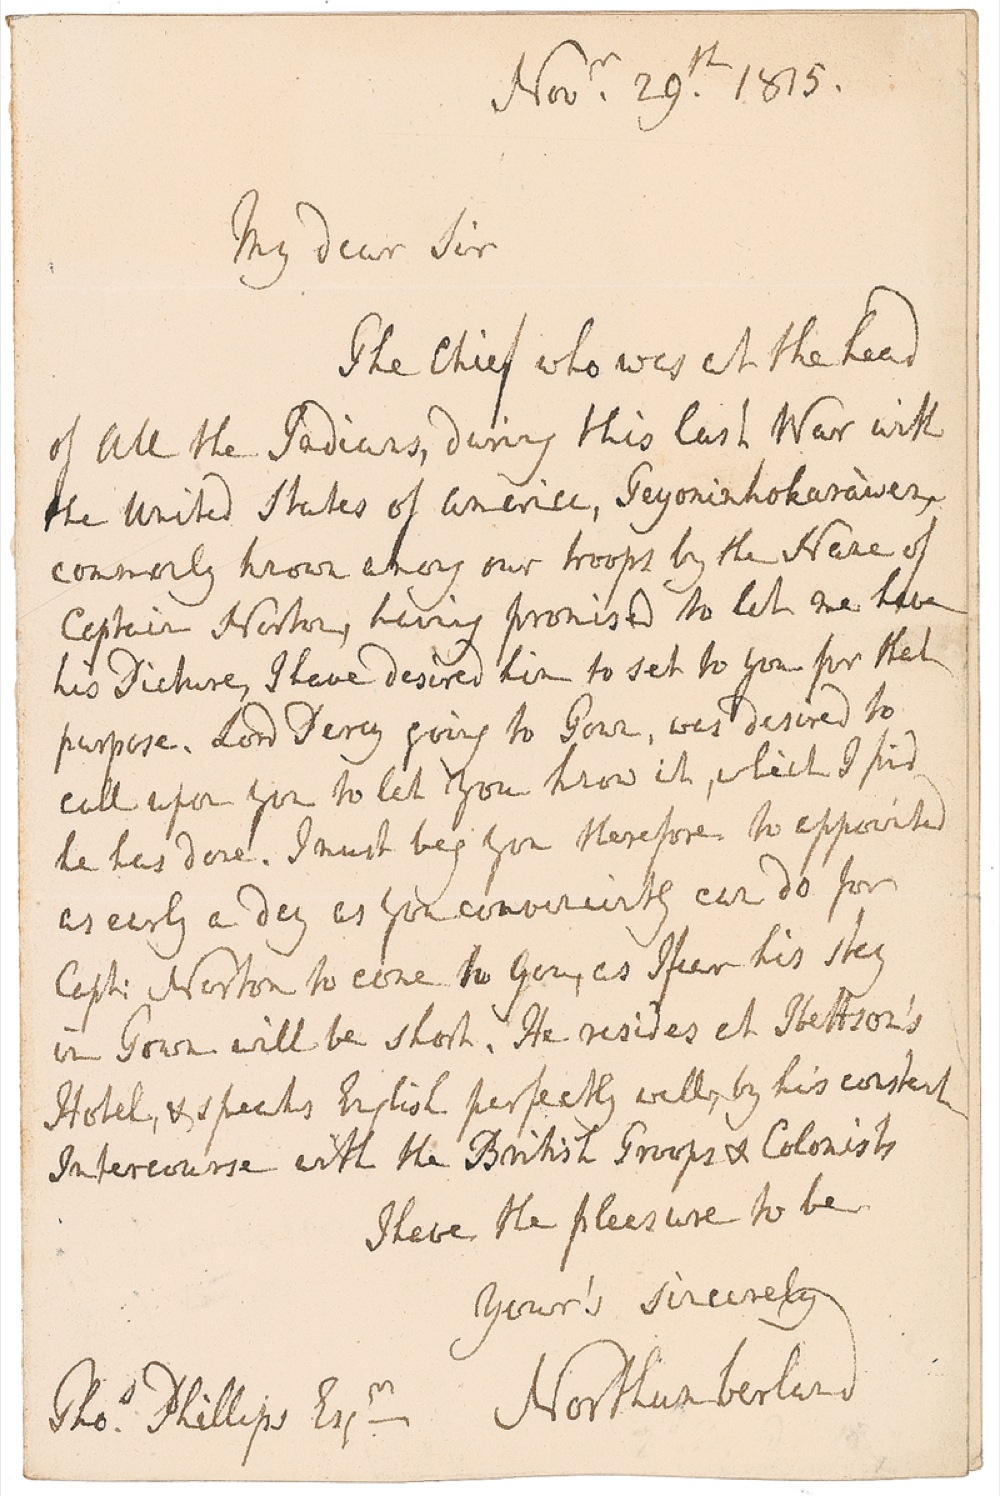 Novr. 29th. 1815.
My dear Sir
The Chief who was at the head
of all the Indians, during this last War with
the United States of America, Teyoninhokaràwen,
commonly known among our troops by the Name of
Captain Norton, having promised to let me have
his Picture, I have desired him to set to you for that
purpose. Lord Percy going to Town, was desired to
call upon you to let you know it, which I find
he has done. I must beg you therefore to appointed
as early a day as you conveniently can do for
Capt: Norton to come to you, as I fear his stay
in Town will be short. He resides at Ibettson's
Hotel, & speaks English perfectly well, by his constant
Intercourse with the British Troops & Colonists
I have the pleasure to be
Your's sincerely
Northumberland
Thos. Phillips Esqr